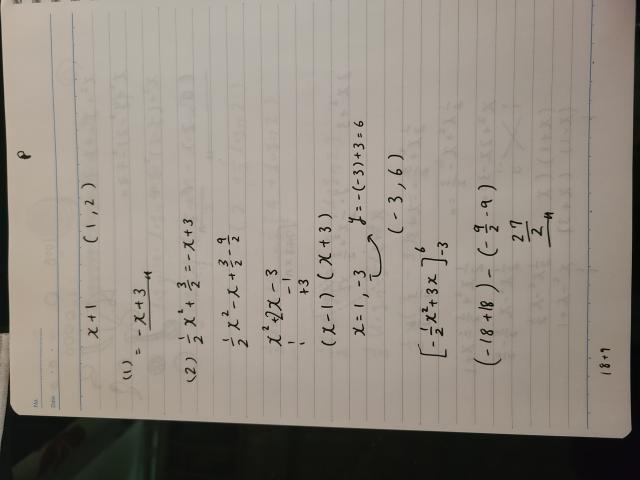 No.
Date
P
x+1 (1,2)
(1)
= -x+3
(2) 1/2 x² + 3/2 = -x+3
1/2 x² - x + 3/2 - 9/2
x²+2x-3
1 -1
1 +3
(x-1)(x+3)
x=1, -3 y=-(-3)+3=6
(-3,6)
[-1/2 x²+3x]⁶₋₃
(-18+18)-(-9/2-9)
27/2
18+9